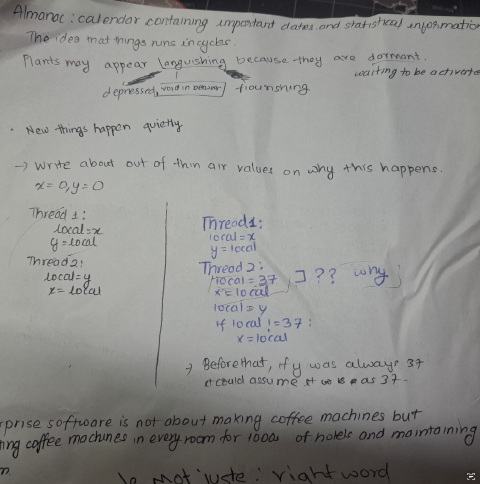 Almanac : calendar containing important dates and statistical information
The idea that things runs in cycles.
Plants may appear languishing because they are dormant.
waiting to be activate
depressed, void in between flourishing
• New things happen quietly
→ Write about out of thin air values on why this happens.
x = 0, y = 0
Thread 1:
local = x
y = local
Thread 2:
local = y
x = local
Thread 1:
local = x
y = local
Thread 2:
local = 37 ?? why
x = local
local = y
if local != 37 :
x = local
→ Before that, if y was always 37
it could assume it as 37.
rprise software is not about making coffee machines but
ting coffee machines in every room for 1000s of hotels and maintaining
m.
le mot juste : right word